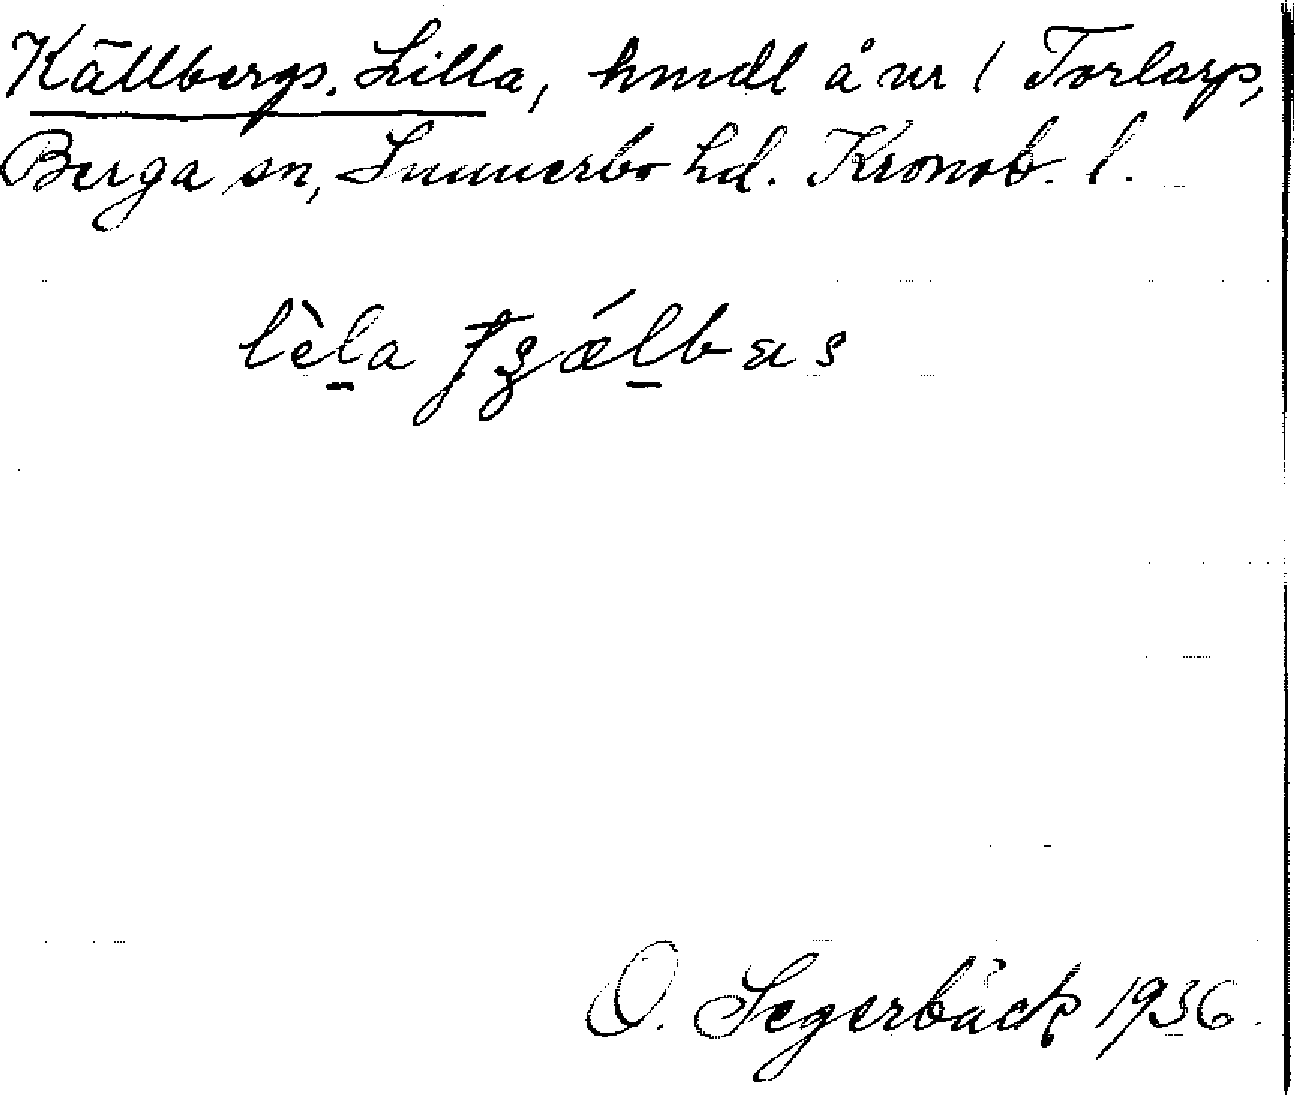 Källbergs, Lilla, hmdl å nr 1 Torlarp,
Berga sn, Sunnerbo hd. Kronob. l.
O. Segerbäck 1936.